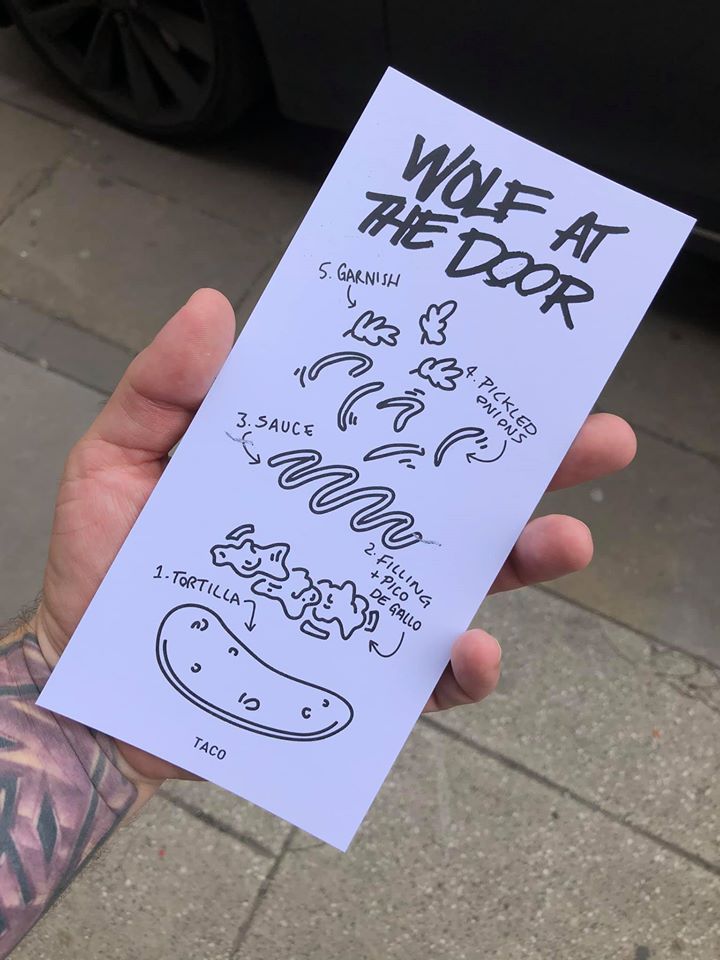 WOLF AT
THE DOOR
5. GARNISH
4. PICKLED
ONIONS
3. SAUCE
2. FILLING
+ PICO
DE GALLO
1. TORTILLA
TACO